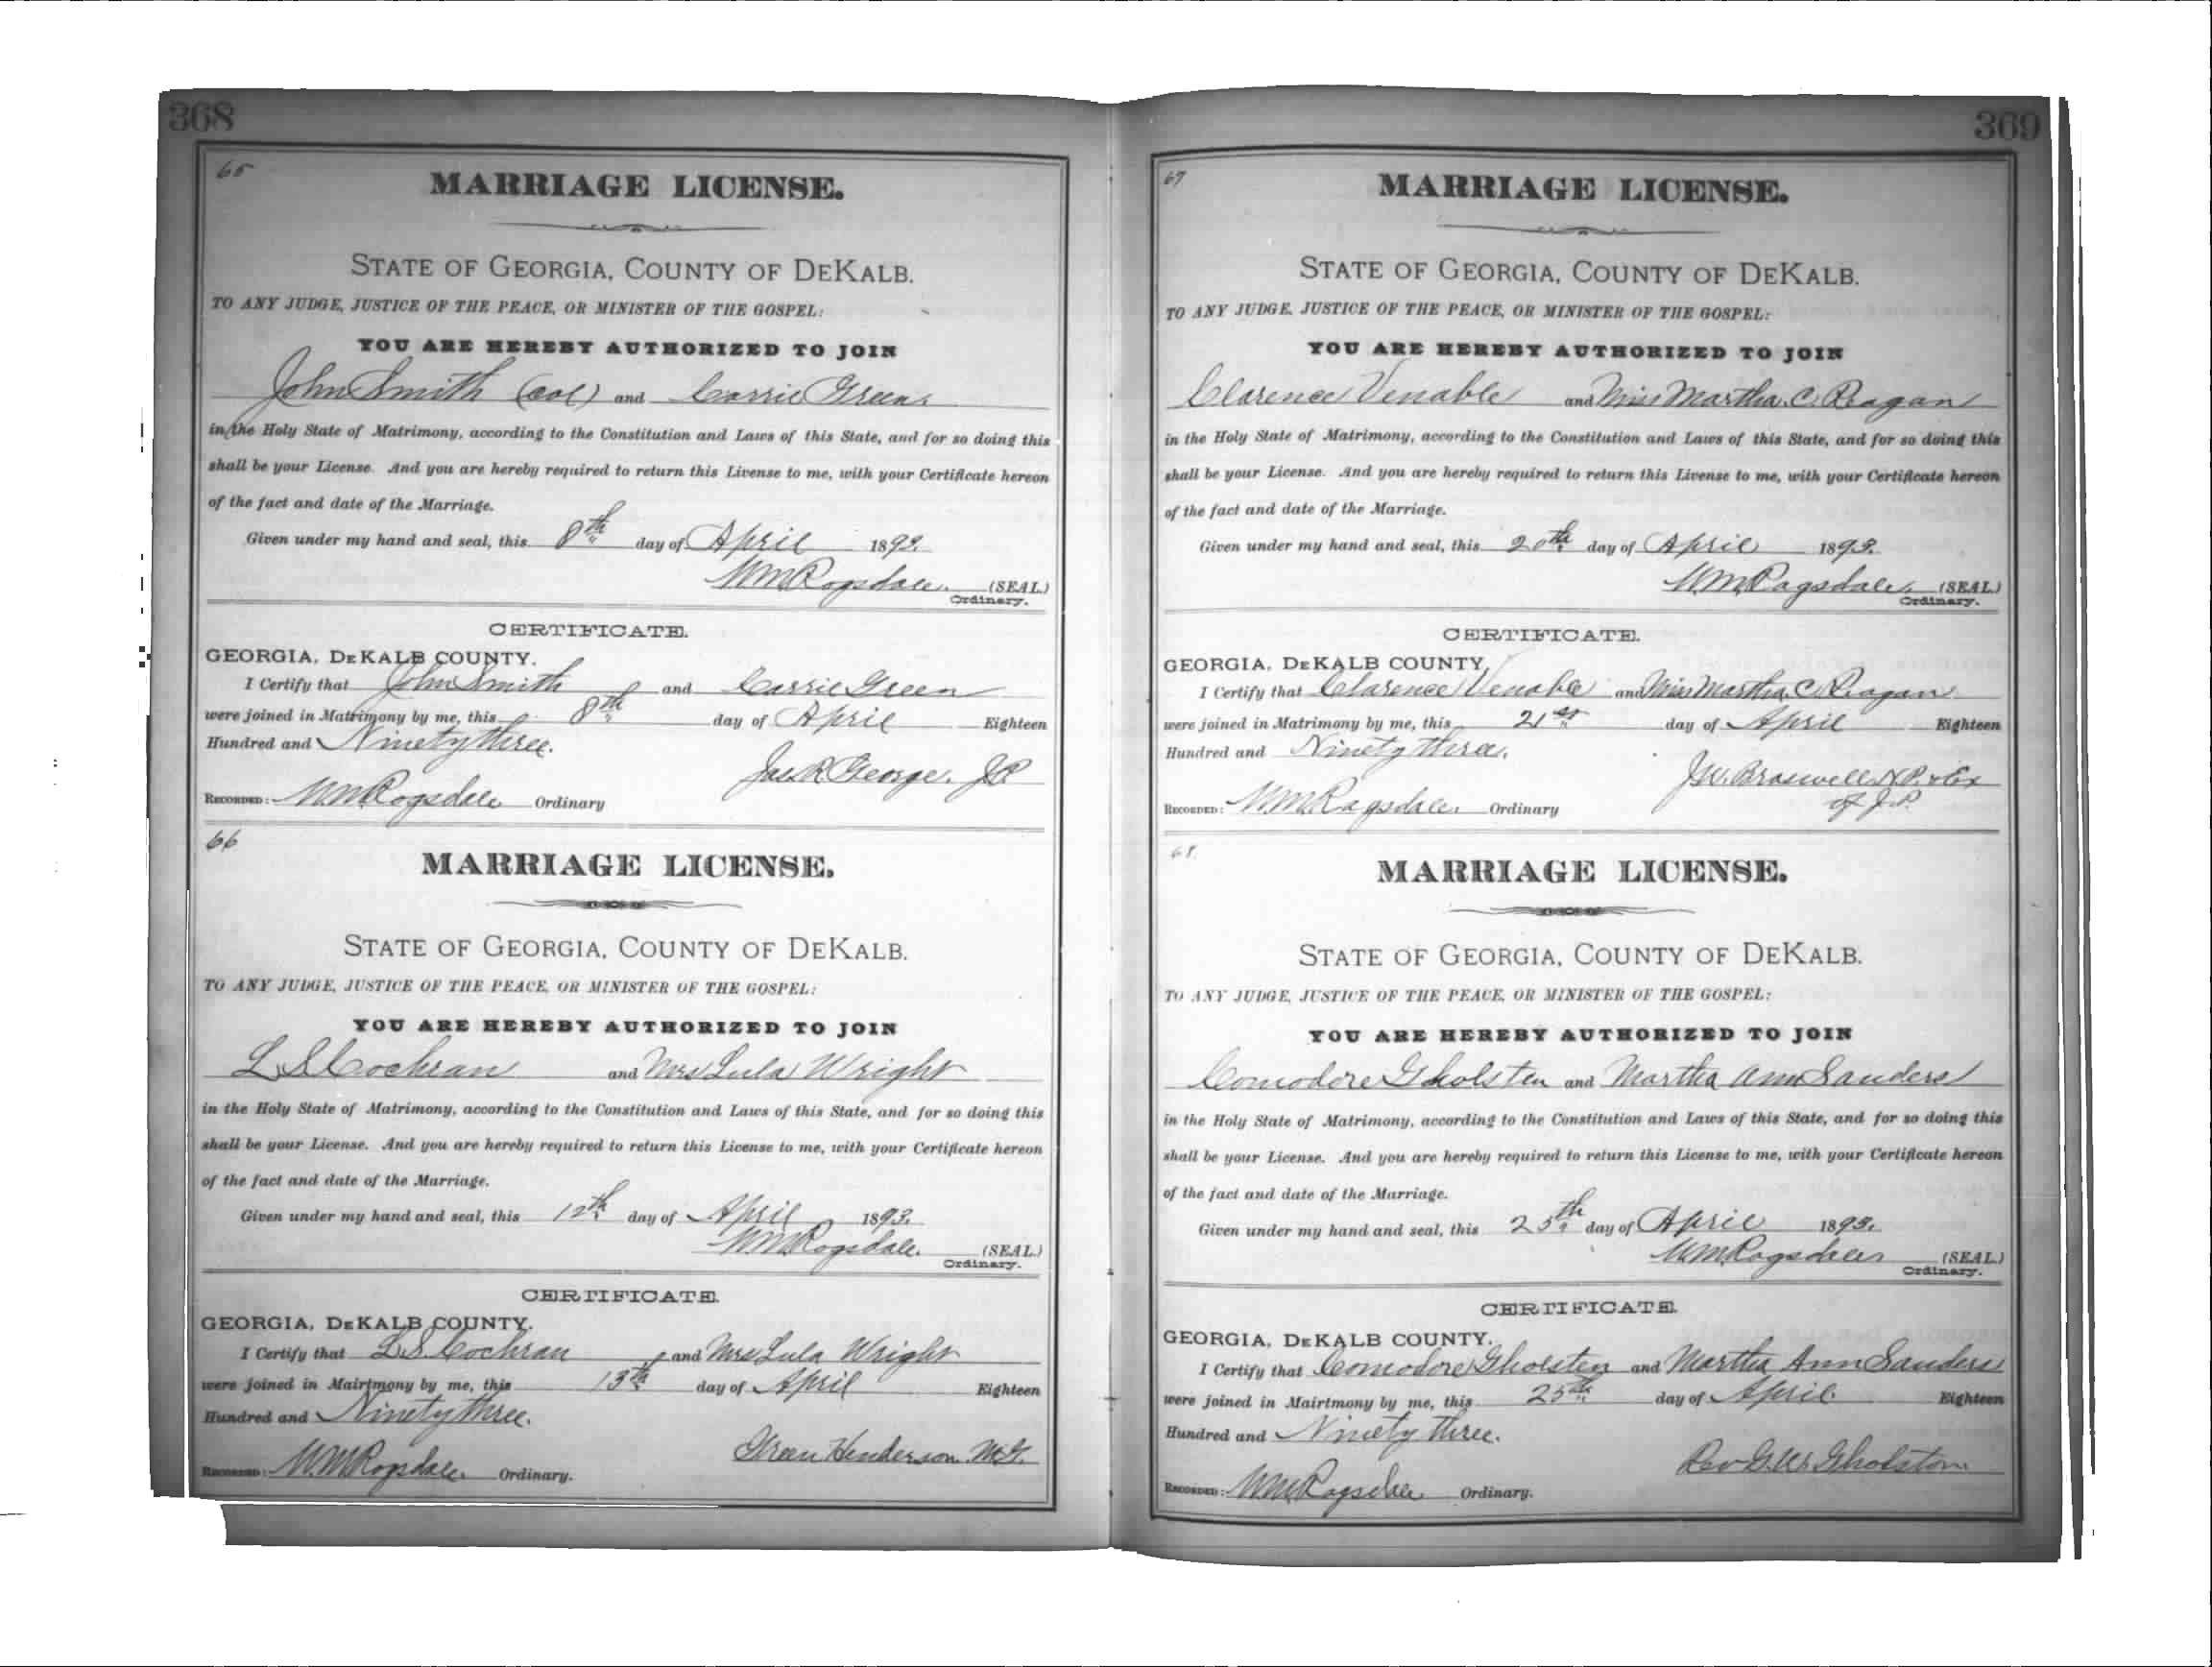 368
65
MARRIAGE LICENSE.
STATE OF GEORGIA, COUNTY OF DEKALB.
TO ANY JUDGE, JUSTICE OF THE PEACE, OR MINISTER OF THE GOSPEL:
YOU ARE HEREBY AUTHORIZED TO JOIN
John Smith (col) and Carrie Green
in the Holy State of Matrimony, according to the Constitution and Laws of this State, and for so doing this
shall be your License. And you are hereby required to return this License to me, with your Certificate hereon
of the fact and date of the Marriage.
Given under my hand and seal, this 8th day of April 1893.
WM Ragsdale. (SEAL)
Ordinary.
CERTIFICATE.
GEORGIA, DEKALB COUNTY.
I Certify that John Smith and Carrie Green
were joined in Matrimony by me, this 8th day of April Eighteen
Hundred and Ninety three.
Jas R George. JP
RECORDED: WM Ragsdale Ordinary
66
MARRIAGE LICENSE.
STATE OF GEORGIA, COUNTY OF DEKALB.
TO ANY JUDGE, JUSTICE OF THE PEACE, OR MINISTER OF THE GOSPEL:
YOU ARE HEREBY AUTHORIZED TO JOIN
L S Cochran and Mrs Lula Wright
in the Holy State of Matrimony, according to the Constitution and Laws of this State, and for so doing this
shall be your License. And you are hereby required to return this License to me, with your Certificate hereon
of the fact and date of the Marriage.
Given under my hand and seal, this 12th day of April 1893.
WM Ragsdale. (SEAL)
Ordinary.
CERTIFICATE.
GEORGIA, DEKALB COUNTY.
I Certify that L.S. Cochran and Mrs Lula Wright
were joined in Mairtmony by me, this 13th day of April Eighteen
Hundred and Ninety three.
Green Henderson M.G.
RECORDED: WM Ragsdale. Ordinary.
369
67
MARRIAGE LICENSE.
STATE OF GEORGIA, COUNTY OF DEKALB.
TO ANY JUDGE, JUSTICE OF THE PEACE, OR MINISTER OF THE GOSPEL:
YOU ARE HEREBY AUTHORIZED TO JOIN
Clarence Venable and Miss Martha. C. Reagan
in the Holy State of Matrimony, according to the Constitution and Laws of this State, and for so doing this
shall be your License. And you are hereby required to return this License to me, with your Certificate hereon
of the fact and date of the Marriage.
Given under my hand and seal, this 20th day of April 1893.
W.M. Ragsdale. (SEAL)
Ordinary.
CERTIFICATE.
GEORGIA, DEKALB COUNTY,
I Certify that Clarence Venable and Miss Martha. C. Reagan
were joined in Matrimony by me, this 21st day of April Eighteen
Hundred and Ninety three.
J.W. Braswell N.P. & Ex
of J.P.
RECORDED: WM Ragsdale. Ordinary
68.
MARRIAGE LICENSE.
STATE OF GEORGIA, COUNTY OF DEKALB.
TO ANY JUDGE, JUSTICE OF THE PEACE, OR MINISTER OF THE GOSPEL:
YOU ARE HEREBY AUTHORIZED TO JOIN
Comodore Gholsten and Martha Ann Sanders
in the Holy State of Matrimony, according to the Constitution and Laws of this State, and for so doing this
shall be your License. And you are hereby required to return this License to me, with your Certificate hereon
of the fact and date of the Marriage.
Given under my hand and seal, this 25th day of April 1893.
WM Ragsdale (SEAL)
Ordinary.
CERTIFICATE.
GEORGIA, DEKALB COUNTY.
I Certify that Comodore Gholsten and Martha Ann Sanders
were joined in Mairtmony by me, this 25th day of April. Eighteen
Hundred and Ninety three.
Rev G.W. Gholston
RECORDED: WM Ragsdale Ordinary.